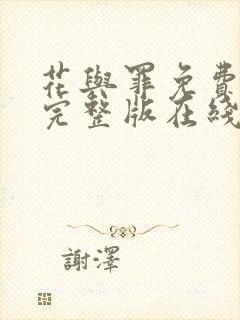 花與罪免費
完整版在綫
謝澤